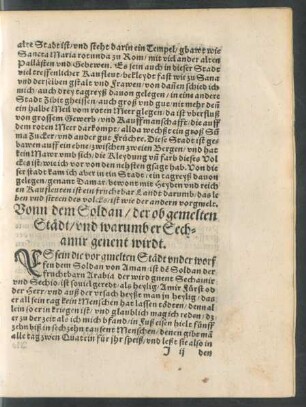 alte Stadt ist/ vnd steht darin ein Tempel/ gbawt wie
Sancta Maria rotunda zu Rom/ mit vil ander alten
Pallästen vnd Gebewen. Es sein auch in dieser Stadt
viel treffenlicher Kaufleut/ bekleydt fast wie zu Sana
vnd derselben gstalt vnd Frawen/ von dannen schied ich
mich/ auch drey tagreyß dauon gelegen/ in eine andere
Stadt Zibit gheissen/ auch groß vnd gut/ nit mehr den
ein halbe Meil vom roten Meer glegen/ da ist vberfluß
von grossem Gewerb/ vnd Kauffmanschafft/ die auß
dem roten Meer darkompt/ allda wechst ein groß Su͂
ma Zucker/ vnd ander gut Früchte. Diese Stadt ist ge-
bawen auff ein ebne/ zwischen zweien Bergen/ vnd hat
kein Mawr vmb sich/ die Kleydung vn͂ farb dieses Vol
cks ist/ wie ich vor von den nehsten gsagt hab. Von die
ser stadt kam ich aber in ein Stadt/ ein tagreyß dauon
gelegen/ genant Damar/ bewont mit Heyden vnd reich
en Kaufleuten/ ist ein fruchtbar Landt darumb/ das le
ben vnd sitten des volcks/ ist wie der andern vorgmelt.
Vonn dem Soldan/ der ob gemelten
Städt/ vnd warumb er Sech-
amir genent wirdt.
ES sein die vor gmelten Städt vnder worf
fen dem Soldan von Aman/ ist de Soldan der
fruchtbarn Arabia/ der wird gnent Sechamir
vnd Sechio/ ist souil geredt/ als heylig/ Amir Fürst ob
der Heer/ vnd auß der vrsach heyst man jn heylig/ das
er all sein tag kein Menschen hat lassen tödten/ denn al
lein so er in kriegen ist/ vnd glaublich mag ich reden/ dz
er zu der zeit als ich mich bfand/ in Fuß eisen hielt/ fünff
zehn biß in sechzehn tausent Menschen/ denen gibt ma͂
alle tag zwen Quatrin für ihr speiß/ vnd leßt sie also in
I ij den